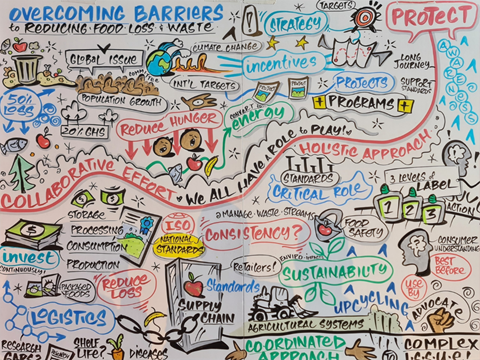 OVERCOMING BARRIERS
to REDUCING FOOD LOSS & WASTE
GLOBAL ISSUE
CLIMATE CHANGE
50% LESS
POPULATION GROWTH
INT'L TARGETS
20% GHS
REDUCE HUNGER
CONVERT to
energy
?
STRATEGY
TARGETS
incentives
LONG
JOURNEY
PROJECTS
PROGRAMS
SUPPORT
STANDARDS
PROTECT
AWARENESS
COLLABORATIVE EFFORT
WE ALL HAVE a ROLE to PLAY!
HOLISTIC APPROACH
STANDARDS
CRITICAL ROLE
3 LEVELS of
LABEL
1 2 3
ACTION
STORAGE
PROCESSING
CONSUMPTION
PRODUCTION
invest
CONTINUOUSLY!
PACKAGED FOODS
REDUCE
LOSS
ISO
NATIONAL
STANDARDS
a MANAGE WASTE STREAMS
CONSISTENCY?
Retailers!
Standards
SUPPLY
CHAIN
FOOD
SAFETY
SUSTAINABILITY
CONSUMER
UNDERSTANDING
BEST
BEFORE
USE
by
UPCYCLING
ADVOCATE
AGRICULTURAL SYSTEMS
LOGISTICS
RESEARCH
GAPS?
SHELF
LIFE?
DISEASES
CO-ORDINATED
APPROACH
COMPLEX
ISSUE!